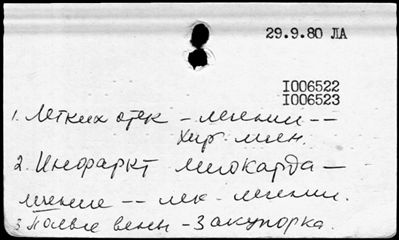 29.9.80 ЛА
I006522
I006523
1. Легких отек – лечении --
Хир. лечен.
2. Инфаркт миокарда –
лечение -- лек. лечении.
3. Полые вены – Закупорка.